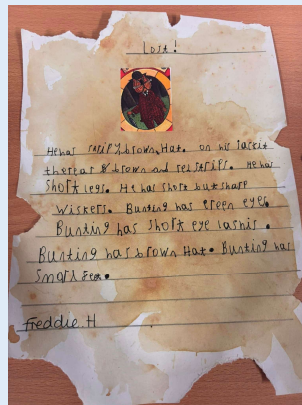 Lost!
He has stripy brown Hat. on his Jackit
thereat & brown and red strips. He has
short legs. He has short but sharp
Wiskers. Bunting has green eyes.
Bunting has short eye lashis.
Bunting has brown Hat. Bunting has
Small feet.
Freddie.H